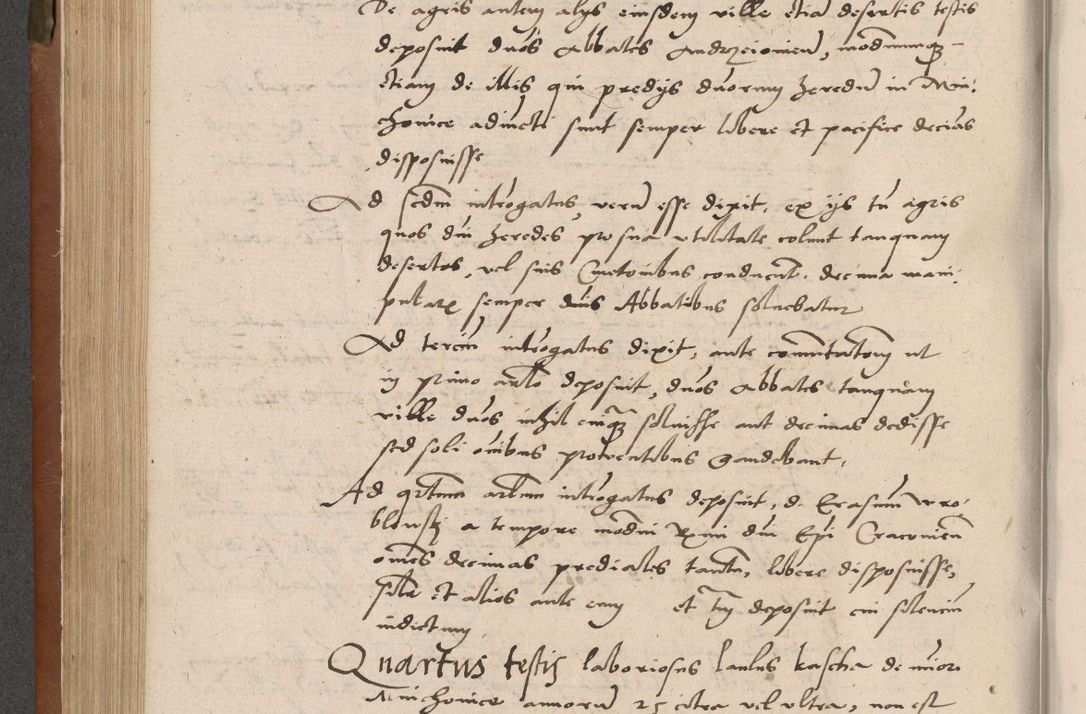 De agris autem alys eiusdem ville etia desertis testis
deposuit duos Abbates Andrzeiouien, modernumq
etiam de illis qui predys duorum heredu in Mni
chouice adiucti sunt semper libere et pacifice decias
disposuisse
Ad scdm introgatus, veru esse dixit, ex ys tn agris
quos dni heredes pro sua vtilitate colunt tanquam
desertos, vel suis Cmetonibus conducunt, decima mani
pularis semper dnis Abbatibus soluebatur
Ad terciu introgatus dixit, ante comutatiom ut
in primo arlo deposuit, duos Abbates tanquam
ville duos nihil cuiq soluisse aut decimas dedisse
sed soli oibus prouentibus gaudebant,
Ad qrtum arlum introgatus deposuit, d. Erasmum Wro
blewsky a tempore modni Rmi dni Epi Cracouien
omes decimas prediales tantu, libere disposuisse,
silr et alios ante eum et tm deposuit cui silenciu
indictum
Quartus testis laboriosus Paulus kascha de minori
Mnichouice annoru 25 citra vel vltra, non est